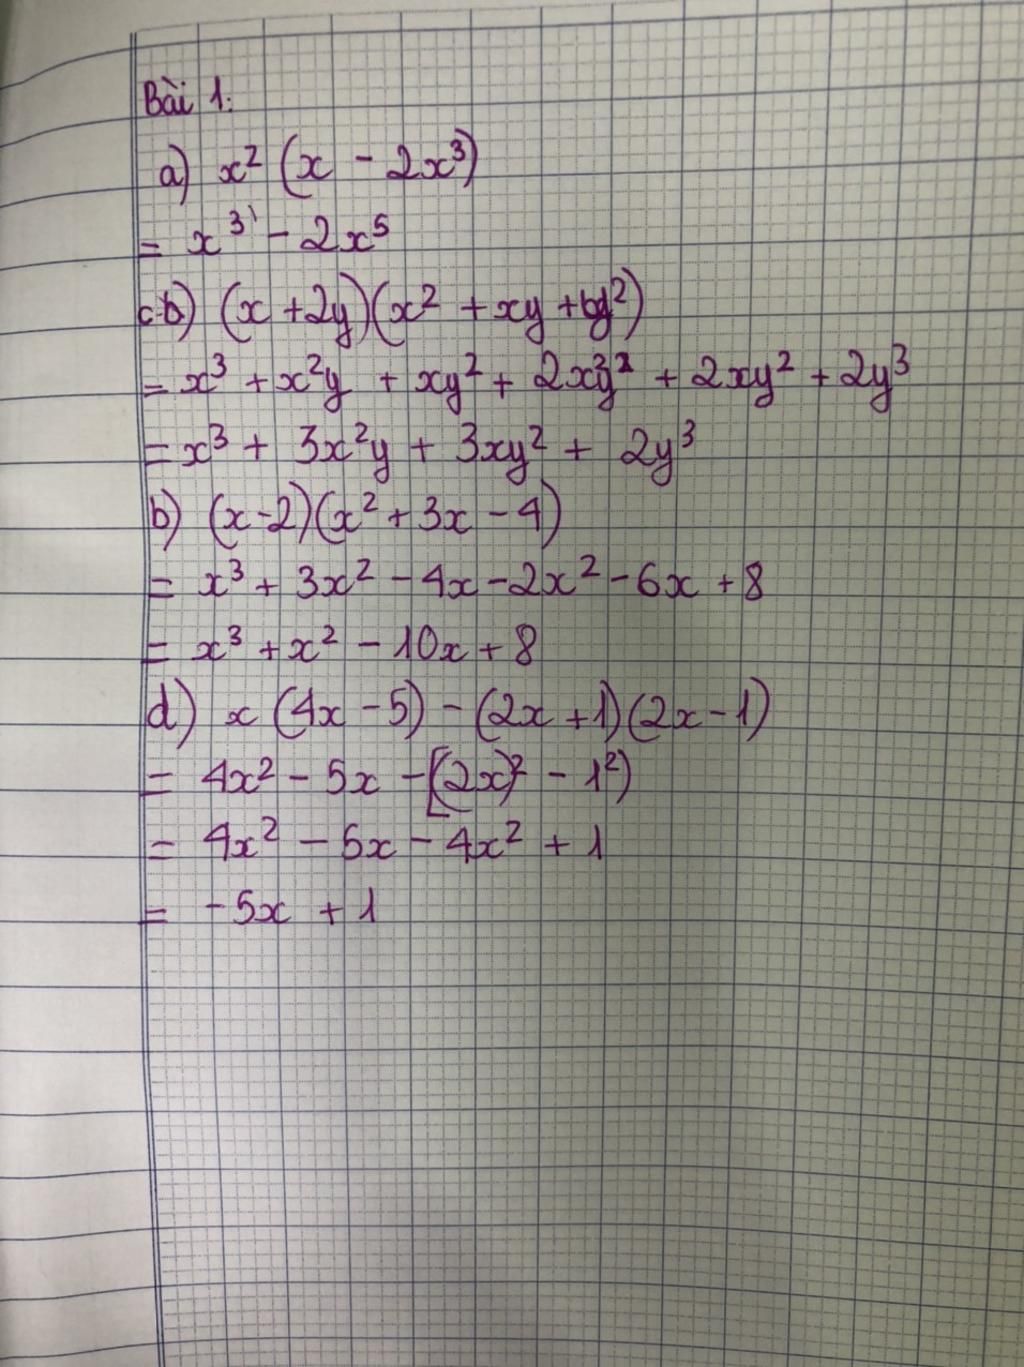 Bài 1:
a) x² (x - 2x³)
= x³ - 2x⁵
c) (x + 2y)(x² + xy + y²)
= x³ + x²y + xy² + 2x²y + 2xy² + 2y³
= x³ + 3x²y + 3xy² + 2y³
b) (x-2)(x² + 3x - 4)
= x³ + 3x² - 4x - 2x² - 6x + 8
= x³ + x² - 10x + 8
d) x (4x - 5) - (2x + 1)(2x - 1)
= 4x² - 5x - [(2x)² - 1²)
= 4x² - 5x - 4x² + 1
= -5x + 1